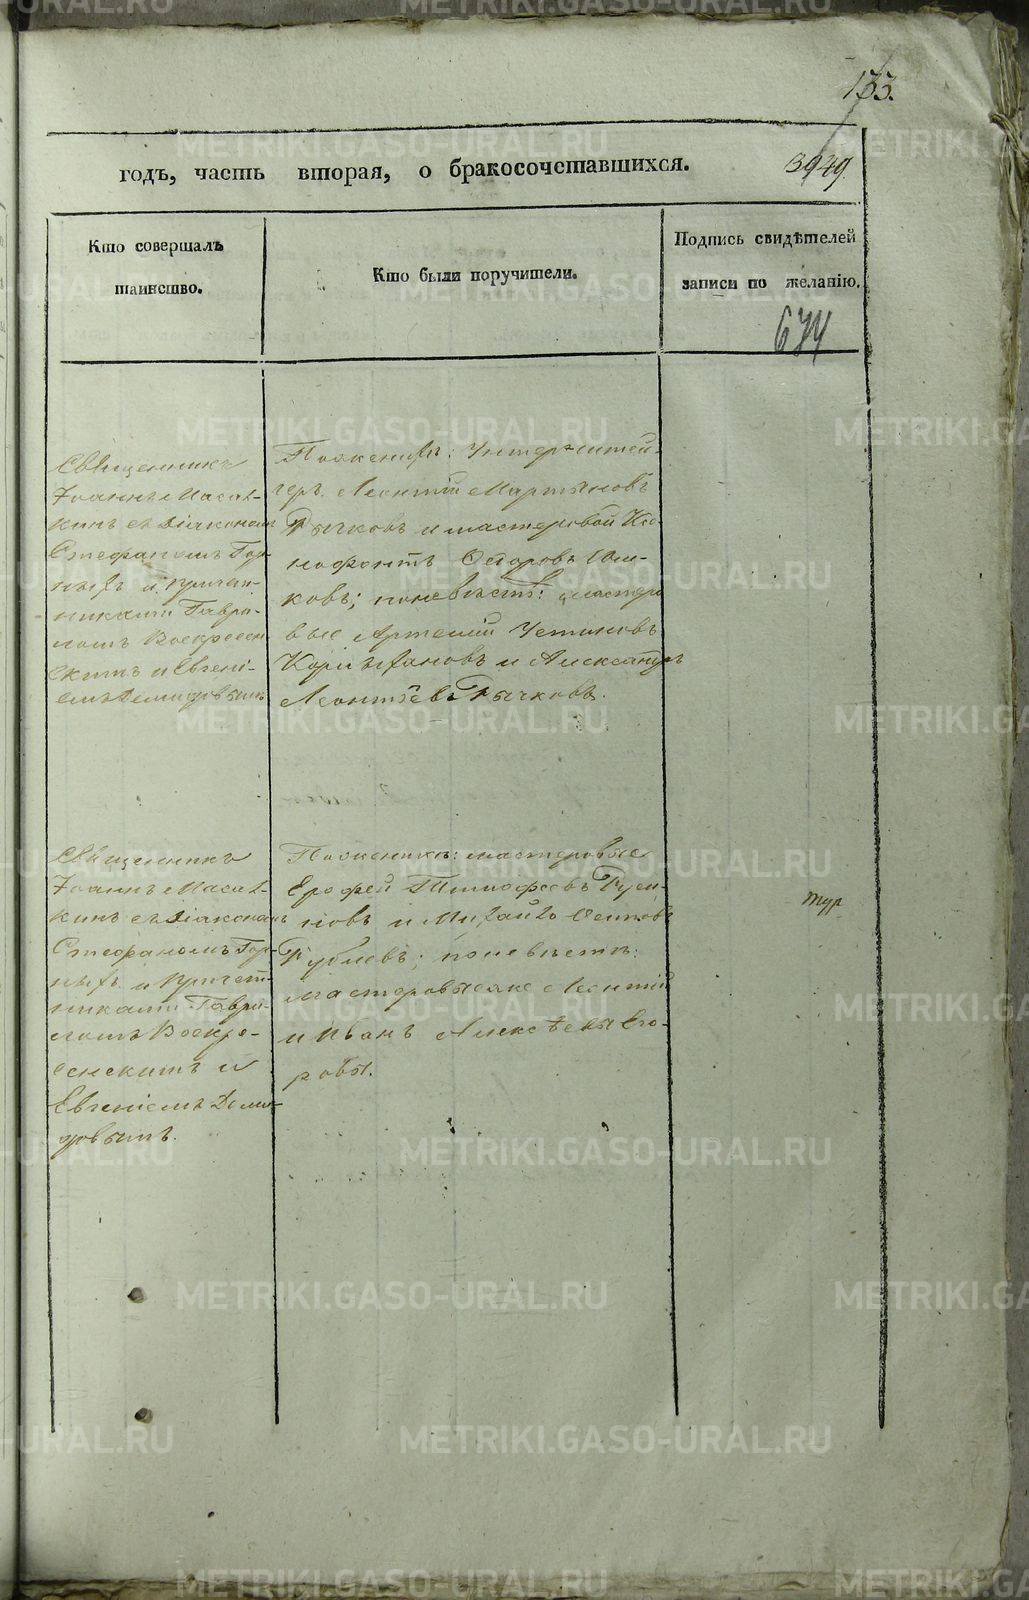 133.
годъ, часть вторая, о бракосочетавшихся.
3949.
Кто совершалъ
таинство.
Кто были поручители.
Подпись свидѣтелей
записи по желанію.
674
Священникъ
Іоаннъ Масал-
кинъ съ діакономъ
Стефаномъ Гор-
ныхъ и причет-
никами Гаврі-
ломъ Воскресен
скимъ и Евгені-
емъ Демидовымъ
По женихѣ: Унтер-штей-
геръ Леонтій Мартыновъ
Рычковъ и мастеровой Ксе-
нофонтъ Ѳедоровъ
ковъ; по невѣстѣ: мастеро
вые Артемій Устиновъ
и Александръ
Леонтіевъ Рычковъ.
Священникъ
Іоаннъ Масал-
кинъ съ діакономъ
Стефаномъ Гор-
ныхъ и причет-
никами Гаврі-
ломъ Воскре-
сенскимъ и
Евгеніемъ Деми-
довымъ.
По женихѣ: мастеровые
Ерофей Тимофеевъ
новъ и Михайло Осиповъ
Рублевъ; по невѣстѣ:
мастеровые же Леонтій
и Иванъ Алексѣевы Его-
ровы.
тур
METRIKI.GASO-URAL.RU